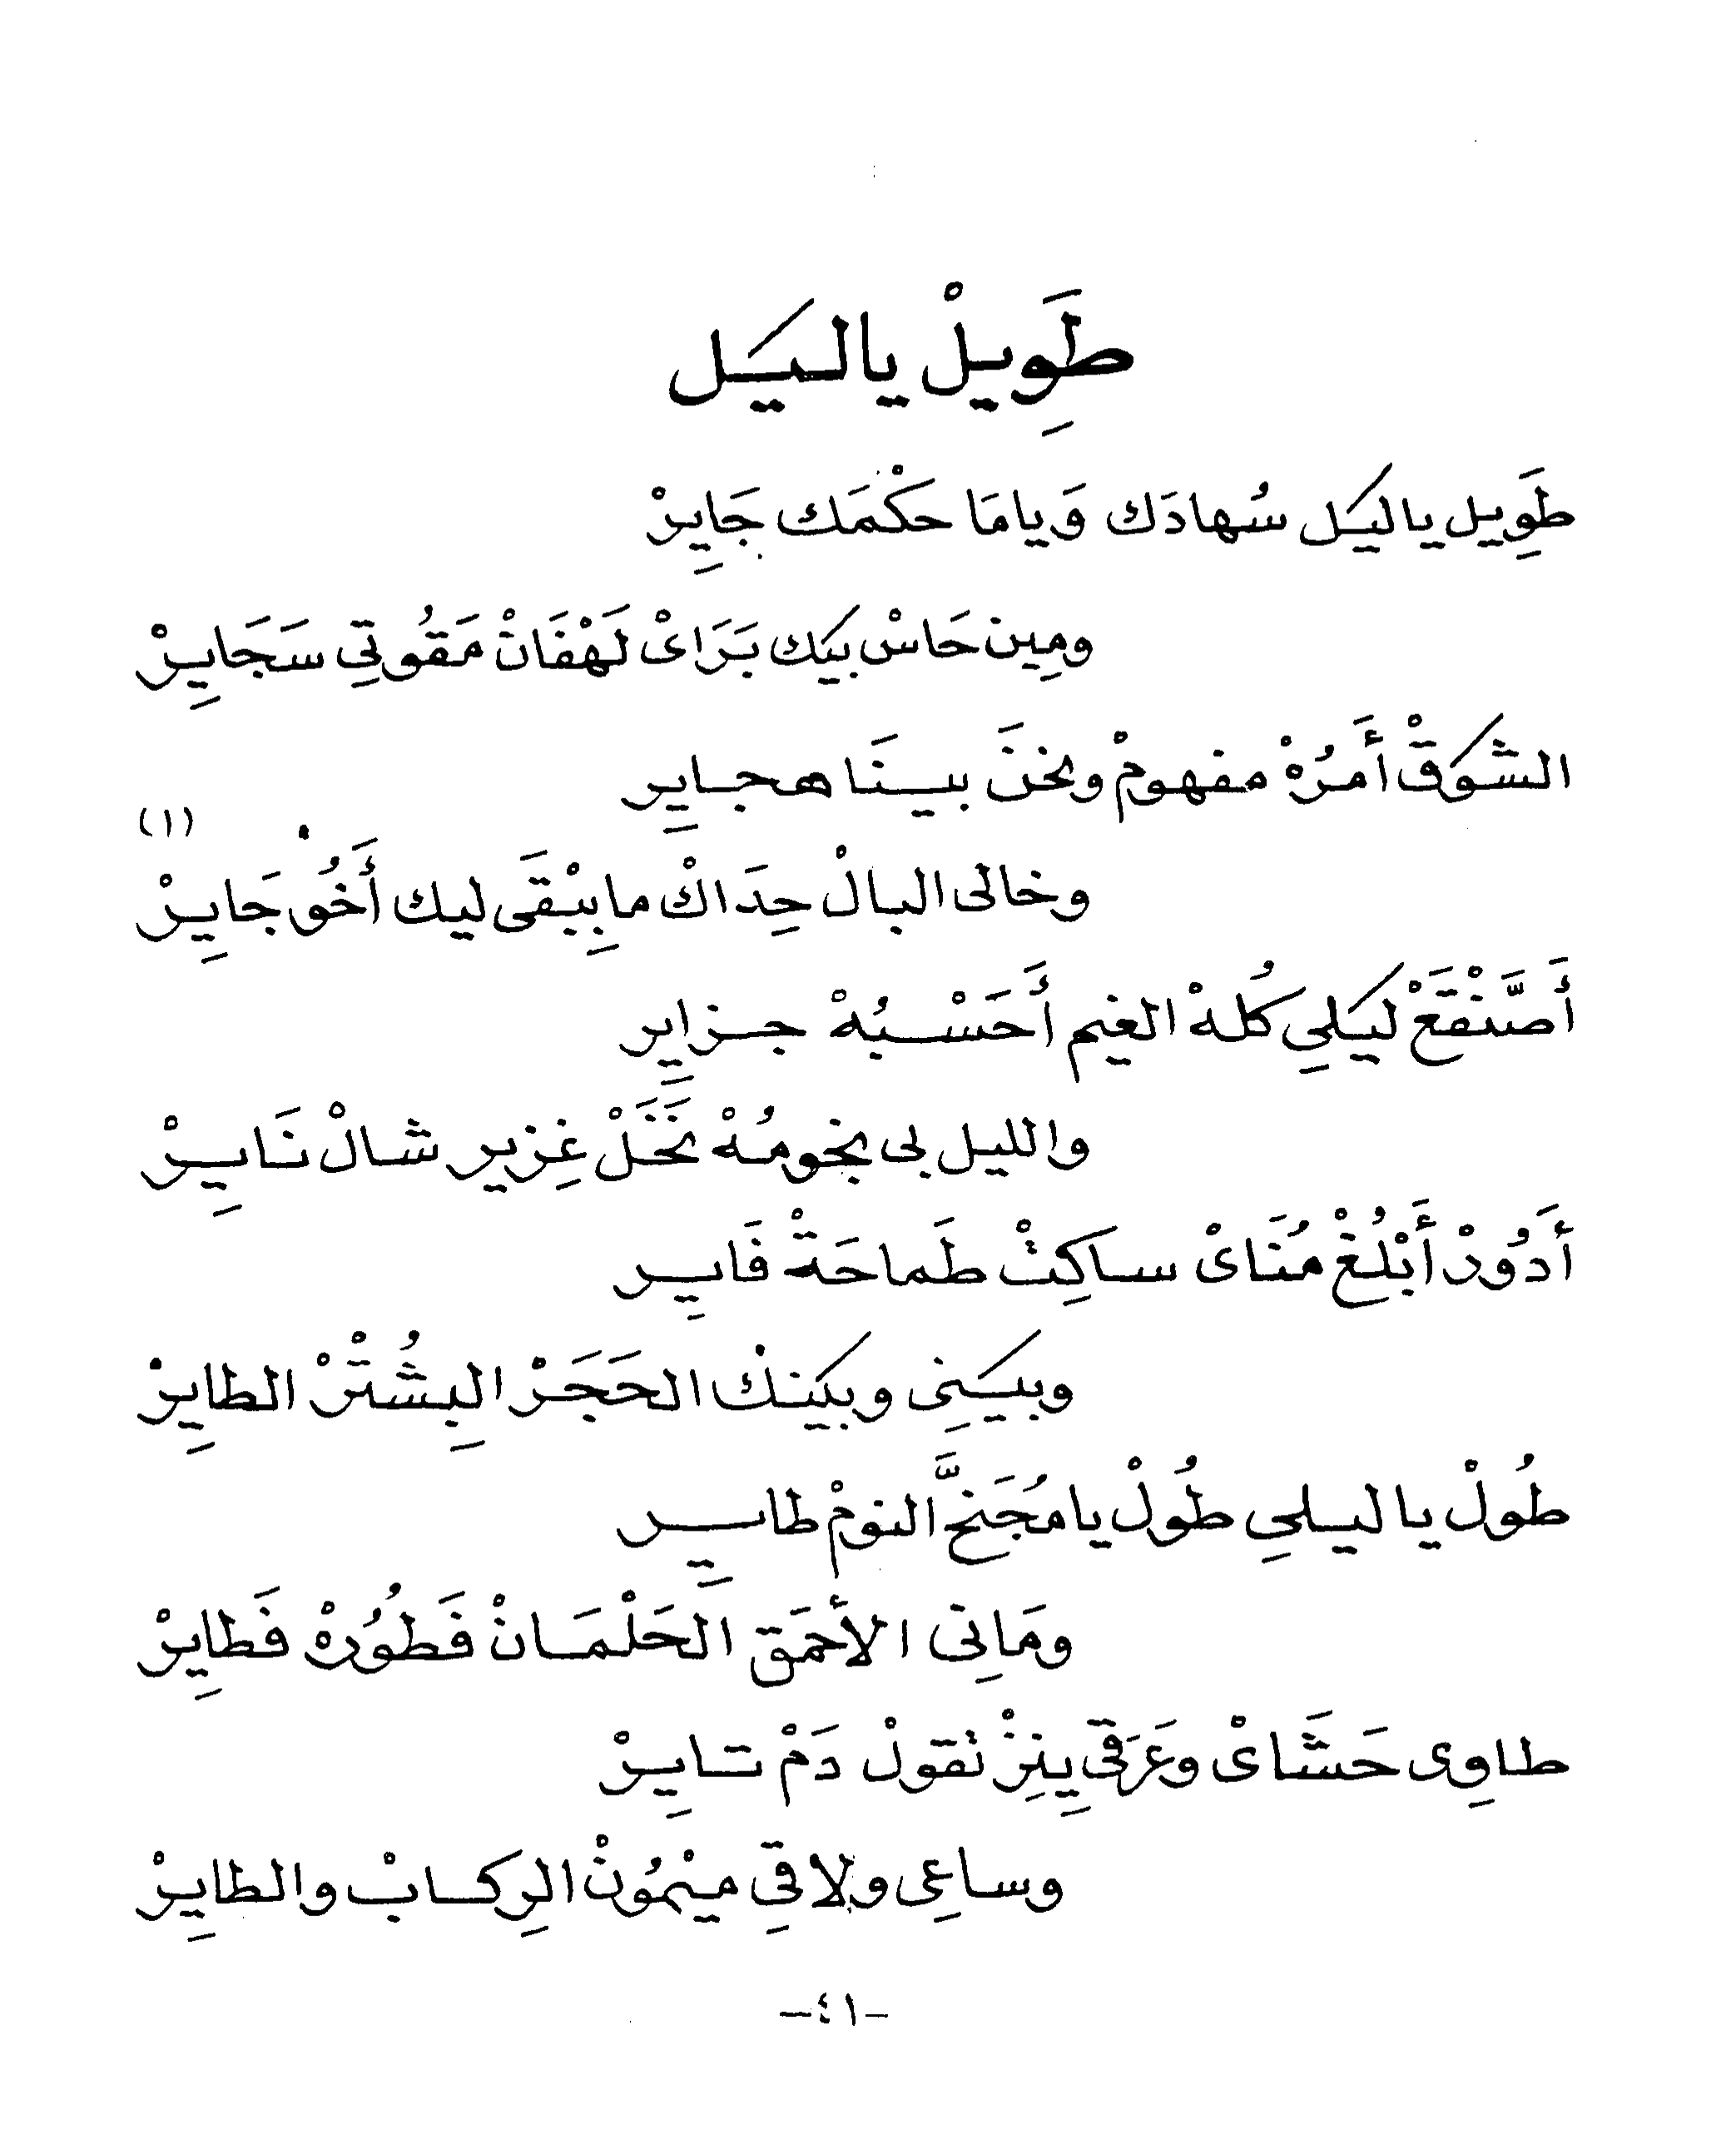 طَوِيلْ ياليَل
طَوِيل ياليَل سُهادَك وَيامَا حَكْمَك جَايِرْ
ومِين حَاسْ بيَك بَرَاىْ لَهْفَانْ مَقُوتِي سَجَايِرْ
الشَوقْ أَمرُهْ مفهومْ ونحنَ بيـنَا هجـايِر
(١)
وخالى البالْ حِدَاكْ مابِيْقَى ليك أَخُوْ جَايِرْ
أَصَّنْقَعْ ليَلِي كُلهْ الغيم أَحَسْـبُهْ جـزايِر
والليل بى نجومُهْ نَخَلْ غِزير شالْ نَايِـرْ
أَدَوُرْ أَبْلُغْ مُنَاىْ ساكِتْ طَماحَةْ فَايِـر
وبيَـنِى وبيَنكْ الحَجَرْ البِشُتْرْ الطايِرْ
طُولْ يا ليـلِي طُولْ يامُجَنحَّ النومْ طايِـر
ومَانِى الأحمَق الحَلْمَـانْ فَطُوُرهْ فَطايِرْ
طاوِى حَشَاىْ وعَرَقِى يِنِزْ تقولْ دَمْ تـايِـرْ
وساعِى ولاقِي ميْمُونْ الرِكـابْ والطايِرْ
-٤١-